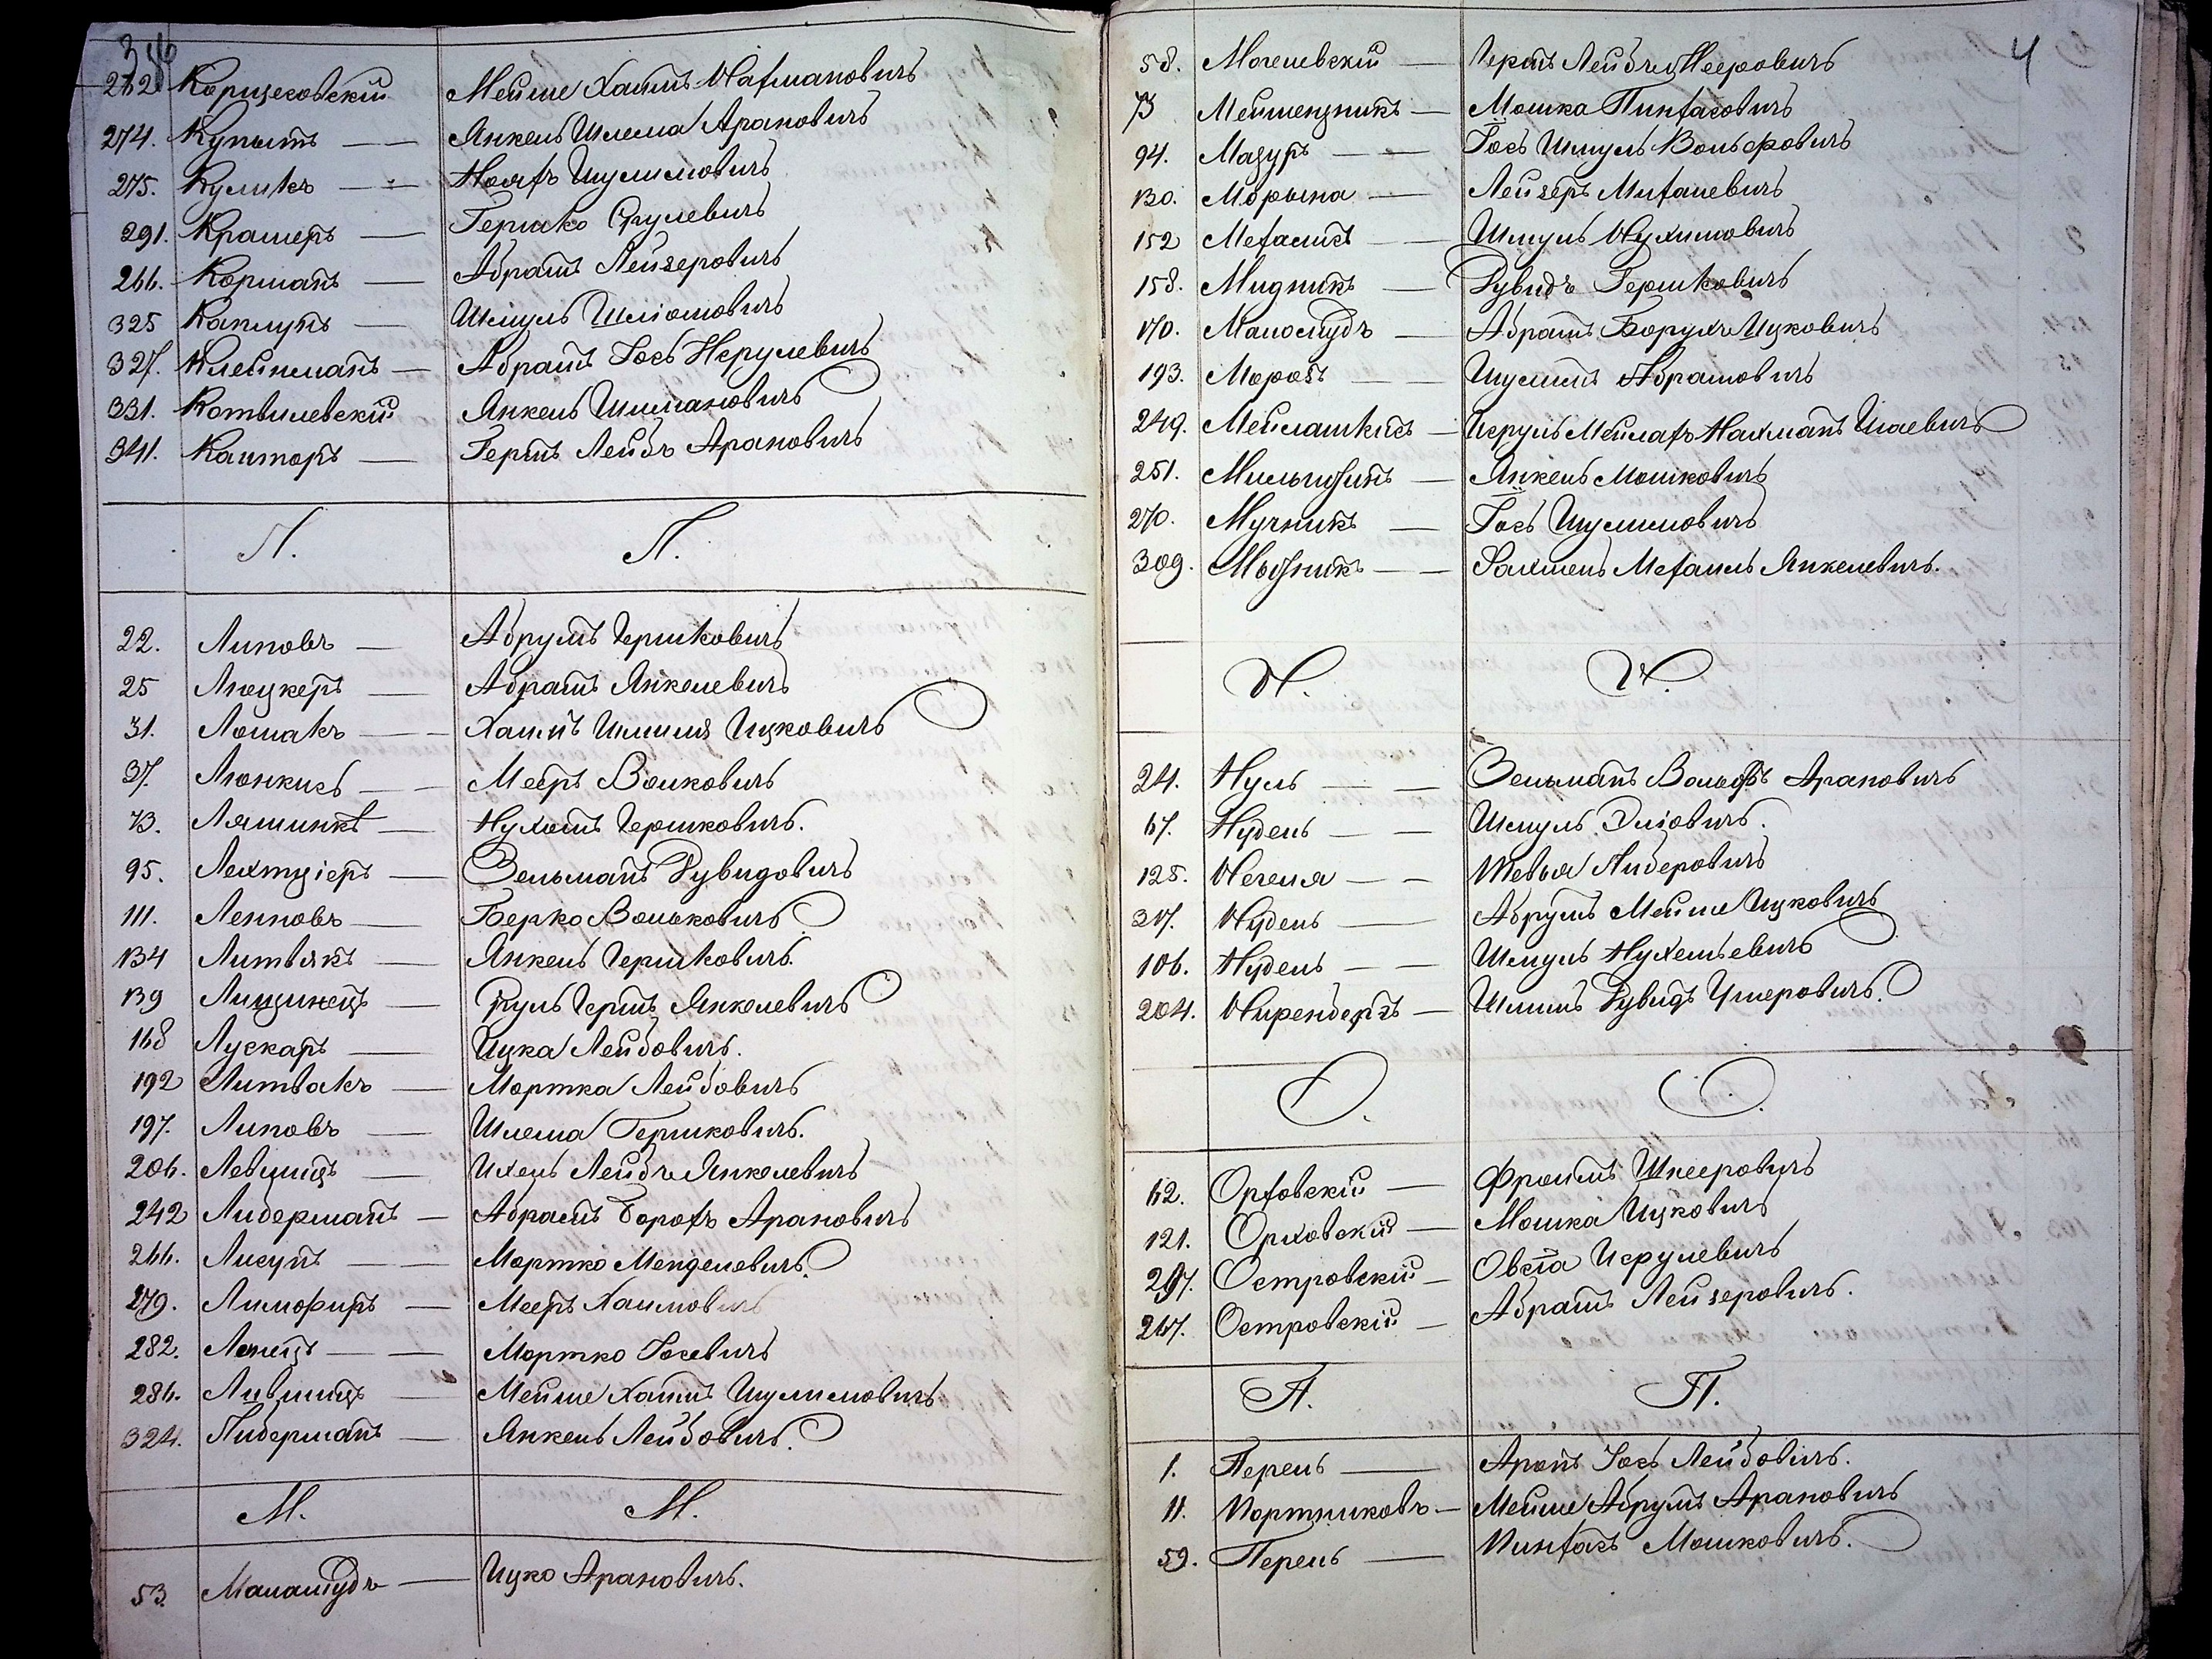 272. Корщековскій Мейше Хаимъ Нахмановичъ
274. Купытъ — Янкель Шлема Арановичъ
275. Куликъ — Ноахъ Шулимовичъ
291. Крамеръ — Гершко Срулевичъ
266. Корманъ — Абрамъ Лейзеровичъ
325 Каплунъ — Шмуль Шліомовичъ
327. Клейнманъ — Абрамъ Іось Исрулевичъ
331. Котвилевскій Янкель Шимановичъ
341. Канторъ — Гершъ Лейбъ Арановичъ
Л. Л.
22. Липовъ — Абрумъ Гершковичъ
25 Люцкеръ — Абрамъ Янкелевичъ
31. Лошакъ — Хаимъ Шмиля Ицковичъ
37. Люнкисъ — Мееръ Волковичъ
73. Нухымъ Гершковичъ.
95. Лехтціеръ — Зельманъ Дувидовичъ
111. Лепповъ — Берко Вольковичъ
134 Литвякъ — Янкель Гершковичъ.
139 Лищинецъ — Сруль Гершъ Янкелевичъ
168 Лускарь — Ицка Лейбовичъ.
192 Литвакъ — Мортка Лейбовичъ
197. Липовъ — Шлема Гершковичъ.
206. Левшицъ — Ихель Лейбъ Янкелевичъ
242 Либерманъ — Абрамъ Борохъ Арановичъ
266. Лисунъ — Мортко Менделевичъ.
279. Лимофиръ — Мееръ Хаимовичъ
282. Лепецъ — Мортко Іосевичъ
286. Лившицъ — Мейше Хаимъ Шулимовичъ
324. Либерманъ — Янкель Лейбовичъ.
М. М.
53. Маламудъ — Ицко Арановичъ.
4
58. Могелевскій — Гершъ Лейбъ Мееровичъ
73 Мошка Пинхасовичъ
94. Мазуръ — Іось Шмуль Вольфовичъ
130. Лейзеръ Михалевичъ
152 Мехалисъ — Шмуль Нухимовичъ
158. Мидникъ — Дувидъ Гершковичъ
170. Маломудъ — Абрамъ Борухъ Ицковичъ
193. Морозъ — Шулимъ Абрамовичъ
249. Мейлашкисъ — Исруль Мейлахъ Нахманъ Шаевичъ
251. Мильгозинъ — Янкель Мошковичъ
270. Мучникъ — Іось Шулимовичъ
309. Мызникъ — Мехаиль Янкелевичъ.
Н. Н.
24. Нуль — Зельманъ Вольфъ Арановичъ
67. Нудель — Шмуль Эліовичъ.
128. Негеля — Тевья Либеровичъ
317. Нудель — Абрумъ Мейше Ицковичъ
106. Нудель — Шмуль Нухемьевичъ
204. Ниренбергъ — Шлимъ Дувидъ Умеровичъ.
О. О.
62. Орховскій — Фроимъ Шнееровичъ
121. Орховскій — Мошка Ицковичъ
297. Островскій — Овсіа Исрулевичъ
267. Островскій — Абрамъ Лейзеровичъ.
П. П.
1. Перель — Аронъ Іось Лейбовичъ.
11. Портниковъ — Мейше Абрумъ Арановичъ
59. Перель — Пинхасъ Мошковичъ.